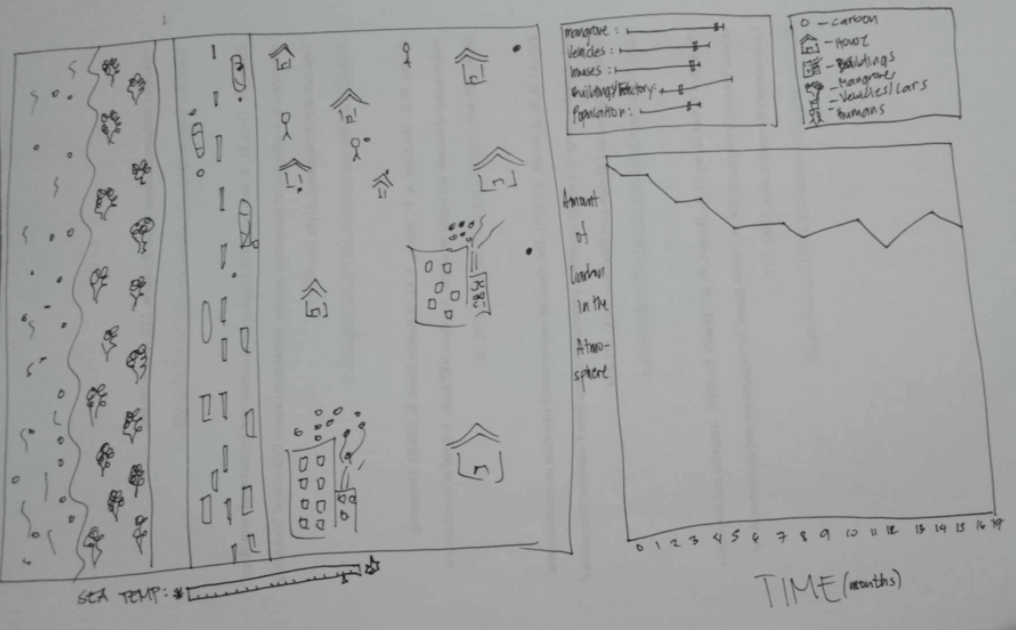 mangrove :
Vehicles :
houses :
Buildings/Factory:
Population :
o - carbon
- House
- Buildings
- Mangrove
- Vehicles/cars
- Humans
Amount
of
Carbon
in the
Atmo-
sphere
0 1 2 3 4 5 6 7 8 9 10 11 12 13 14 15 16 17
TIME (months)
SEA TEMP: